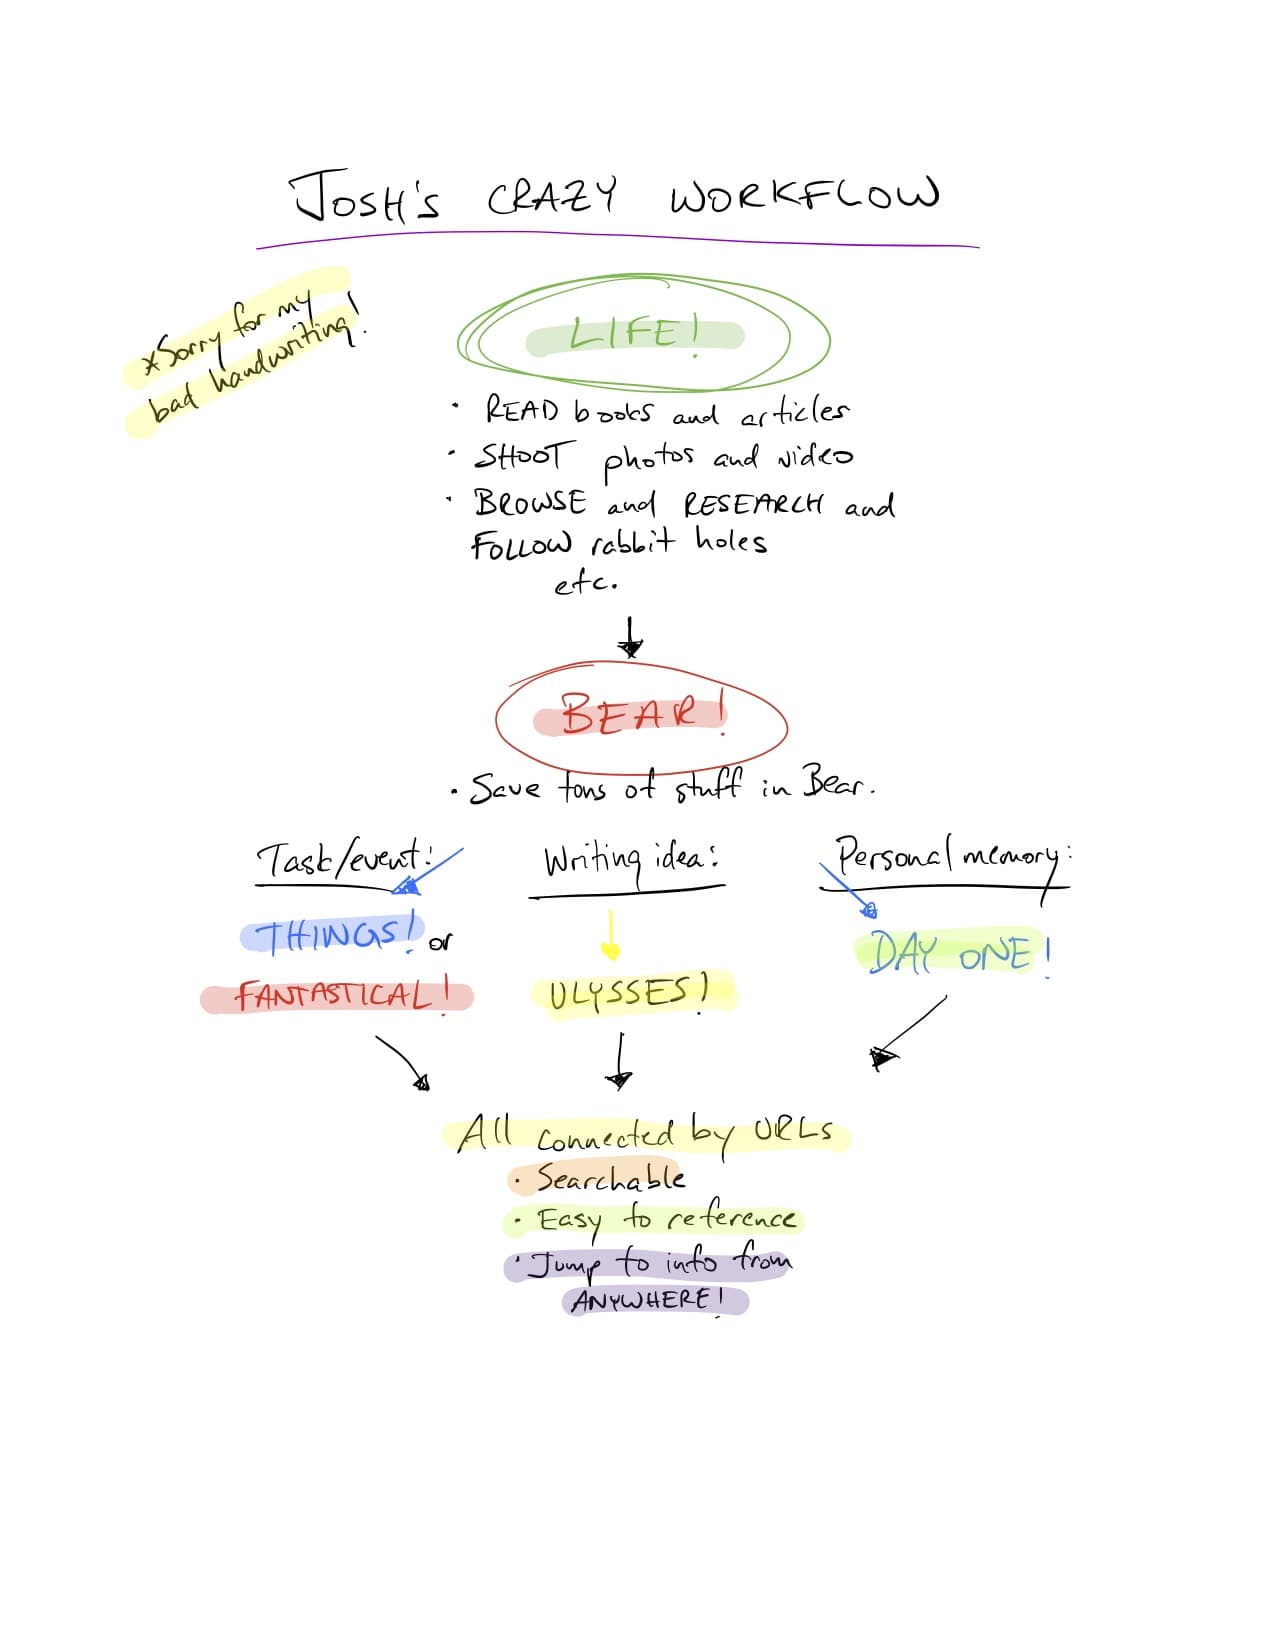 JOSH'S CRAZY WORKFLOW
*Sorry for my
bad handwriting!
LIFE!
• READ books and articles
• SHOOT photos and video
• BROWSE and RESEARCH and
FOLLOW rabbit holes
etc.
BEAR!
• Save tons of stuff in Bear.
Task/event:
THINGS! or
FANTASTICAL!
Writing idea:
ULYSSES!
Personal memory:
DAY ONE!
All connected by URLs
• Searchable
• Easy to reference
• Jump to info from
ANYWHERE!